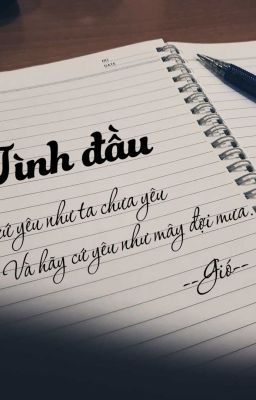 Tình đầu
cứ yêu như ta chưa yêu
Và hãy cứ yêu như mây đợi mưa.
--Gió--